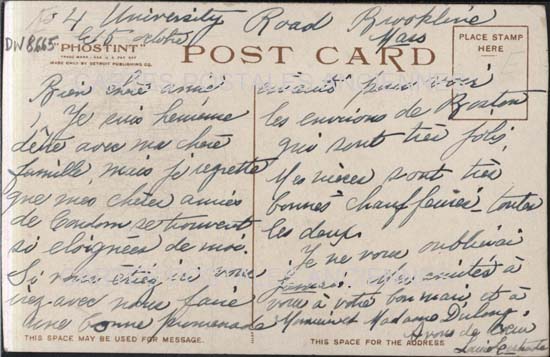 No 4 University Road Brookline
Mass
le 5 Octobre
DW8665
"PHOSTINT"
TRADE MARK REG. U.S. PAT. OFF.
MADE ONLY BY DETROIT PUBLISHING CO.
POST CARD
PLACE STAMP
HERE
Bien chère amie
Je suis heureuse
d'être avec ma chère
famille, mais je regrette
que mes chères amies
de Condom se trouvent
si eloignées de moi.
Si vous étiez ici vous
irez avec nous faire
une bonne promenade
en auto pour voir
les environs de Boston
qui sont très jolis,
Mes nièces sont très
bonnes chauffeuses toutes
les deux.
Je ne vous oublierai
jamais. Mes amitiés à
vous à votre bon mari, et à
Monsieur et Madame Dulong.
A vous de cœur
THIS SPACE MAY BE USED FOR MESSAGE.
THIS SPACE FOR THE ADDRESS